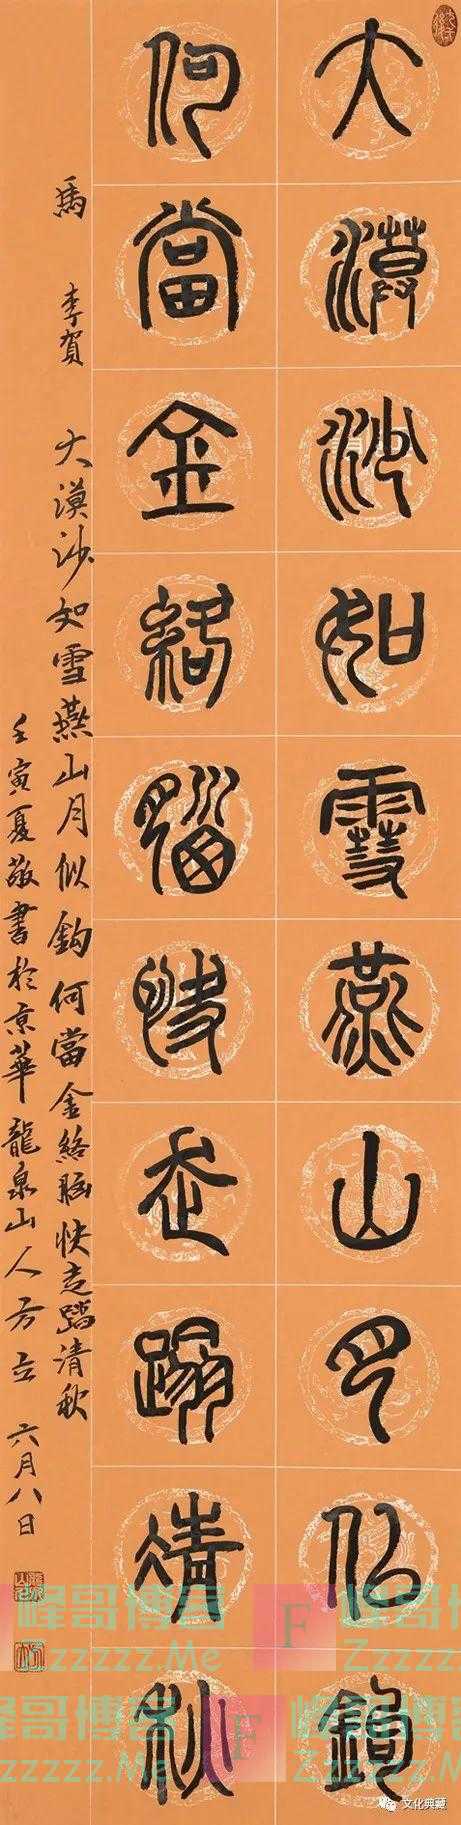 大漠沙如雪燕山月似鉤
何當金絡腦快走踏清秋
馬 李賀 大漠沙如雪燕山月似鉤何當金絡腦快走踏清秋
壬寅夏敬書於京華龍泉山人方立 六月八日
峰哥博客
zzzzz.Me
F
峰哥博客
Zzzzzz.Me
峰哥博客
Zzzzzz.Me
F
峰哥博客
Zzzzzz.Me
文化典藏